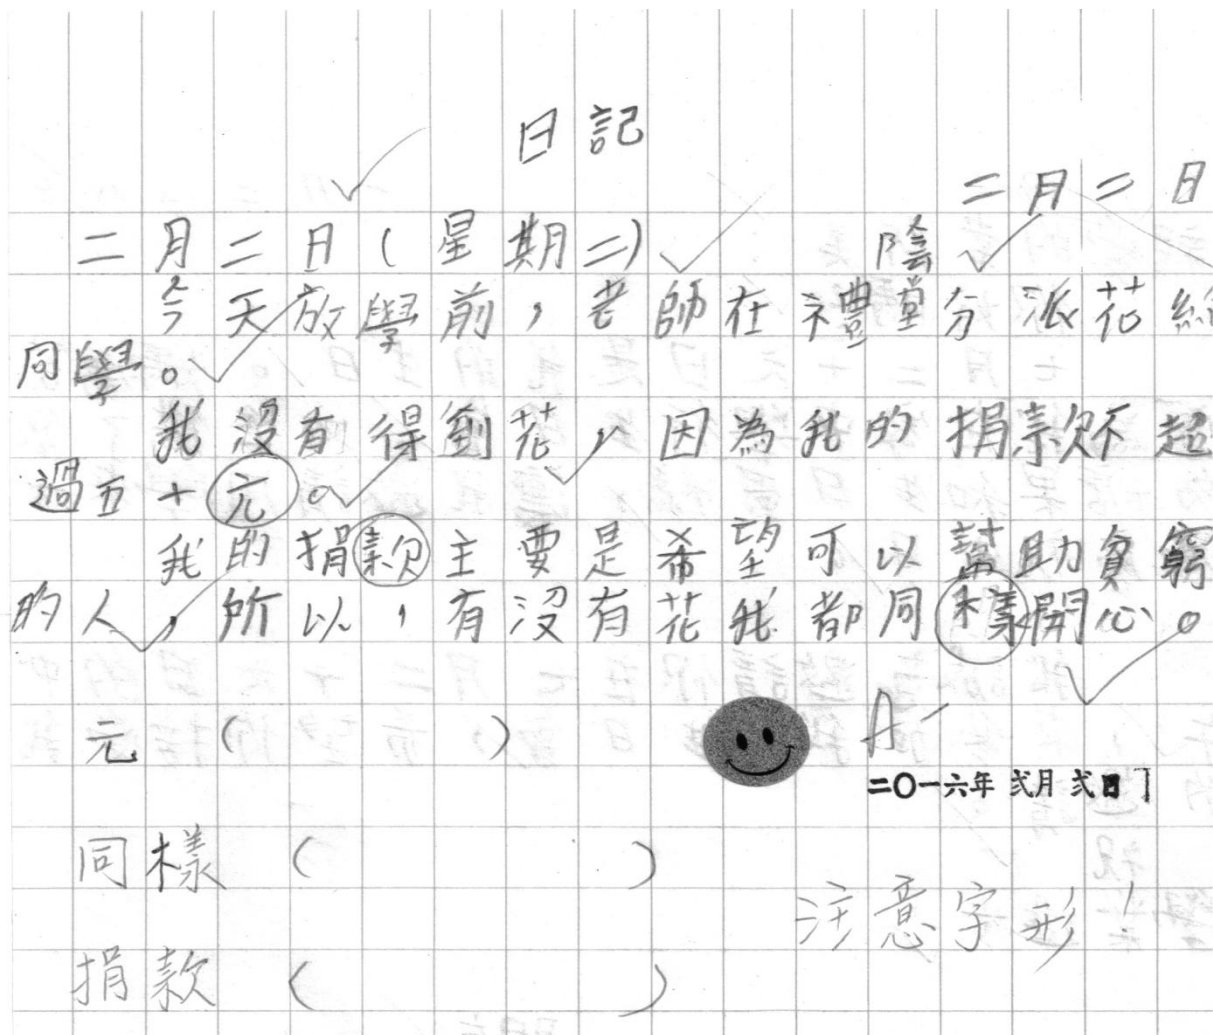 日記
二月二日
二月二日(星期二) 陰
今天放學前，老師在禮堂分派花給
同學。
我沒有得到花，因為我的捐款不超
過五十元。
我的捐款主要是希望可以幫助貧窮
的人，所以，有沒有花我都同樣開心。
元 ( )
A-
二〇一六年 弍月 弍日
同樣 ( )
注意字形！
捐款 ( )